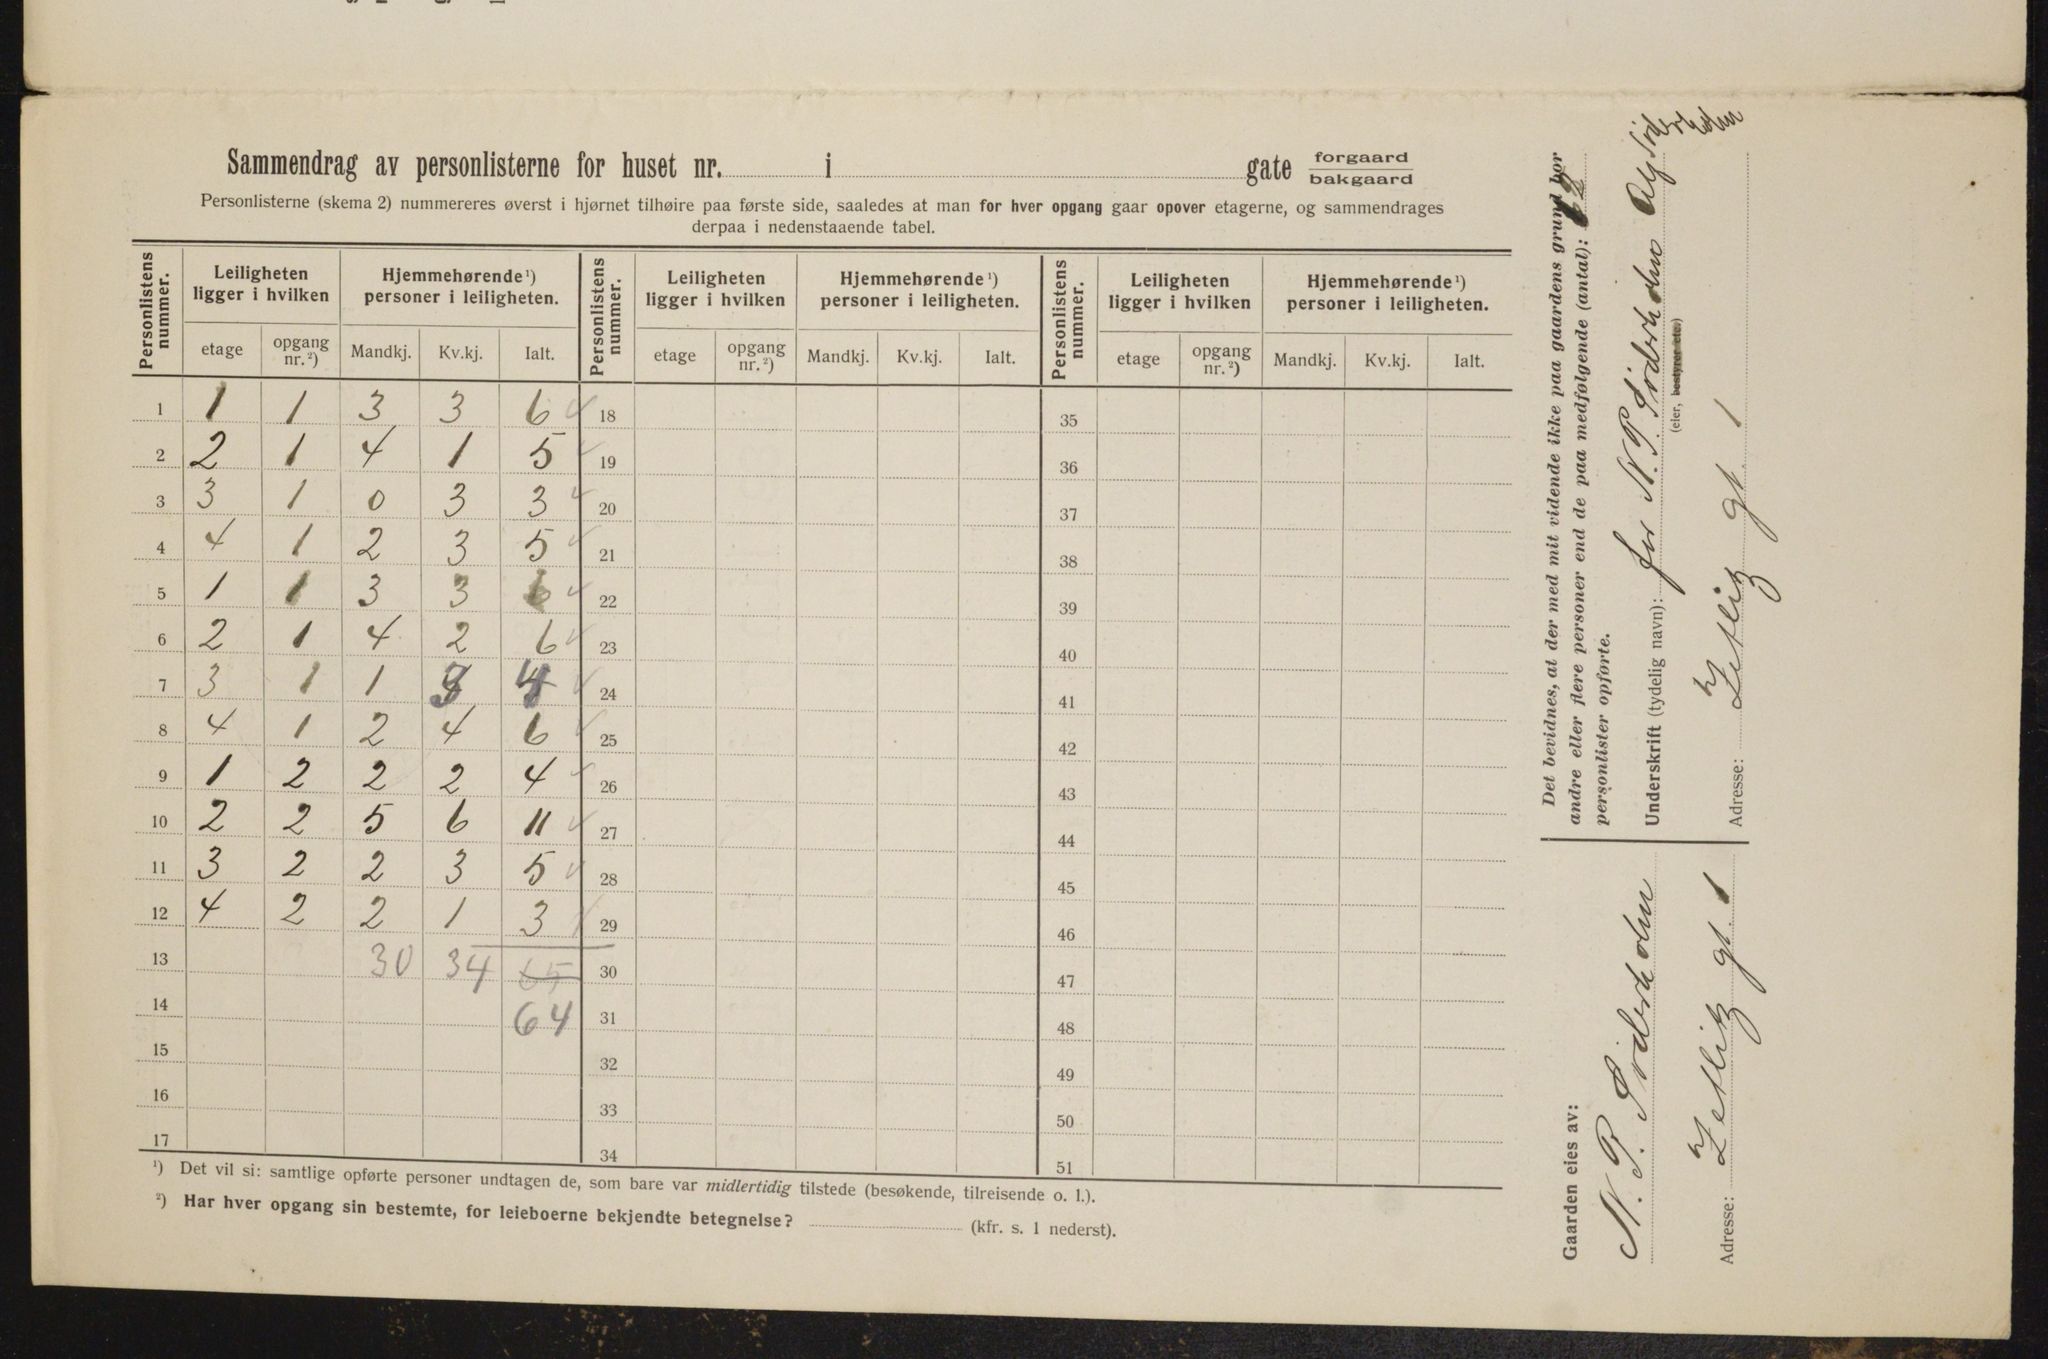 Sammendrag av personlisterne for huset nr. i gate forgaard bakgaard
Personlisterne (skema 2) nummereres øverst i hjørnet tilhøire paa første side, saaledes at man for hver opgang gaar opover etagerne, og sammendrages
derpaa i nedenstaaende tabel.
Personlistens nummer. Leiligheten ligger i hvilken Hjemmehørende¹) personer i leiligheten. Personlistens nummer. Leiligheten ligger i hvilken Hjemmehørende¹) personer i leiligheten. Personlistens nummer. Leiligheten ligger i hvilken Hjemmehørende¹) personer i leiligheten.
etage opgang nr.²) Mandkj. Kv.kj. Ialt. etage opgang nr.²) Mandkj. Kv.kj. Ialt. etage opgang nr.²) Mandkj. Kv.kj. Ialt.
1 1 1 3 3 6 18 35
2 2 1 4 1 5 19 36
3 3 1 0 3 3 20 37
4 4 1 2 3 5 21 38
5 1 1 3 3 6 22 39
6 2 1 4 2 6 23 40
7 3 1 1 3 4 24 41
8 4 1 2 4 6 25 42
9 1 2 2 2 4 26 43
10 2 2 5 6 11 27 44
11 3 2 2 3 5 28 45
12 4 2 2 1 3 29 46
13 30 34 65 30 47
14 64 31 48
15 32 49
16 33 50
17 34 51
¹) Det vil si: samtlige opførte personer undtagen de, som bare var midlertidig tilstede (besøkende, tilreisende o. l.).
²) Har hver opgang sin bestemte, for leieboerne bekjendte betegnelse? (kfr. s. 1 nederst).
Det bevidnes, at der med mit vidende ikke paa gaardens grund bor
andre eller flere personer end de paa medfølgende (antal): 12
personlister opførte.
Underskrift (tydelig navn): for N. P. Söderholm Söderholm
(eier, bestyrer etc.)
Adresse: Zetlitz gt. 1
Gaarden eies av:
N. P. Söderholm
Adresse: Zetlitz gt. 1